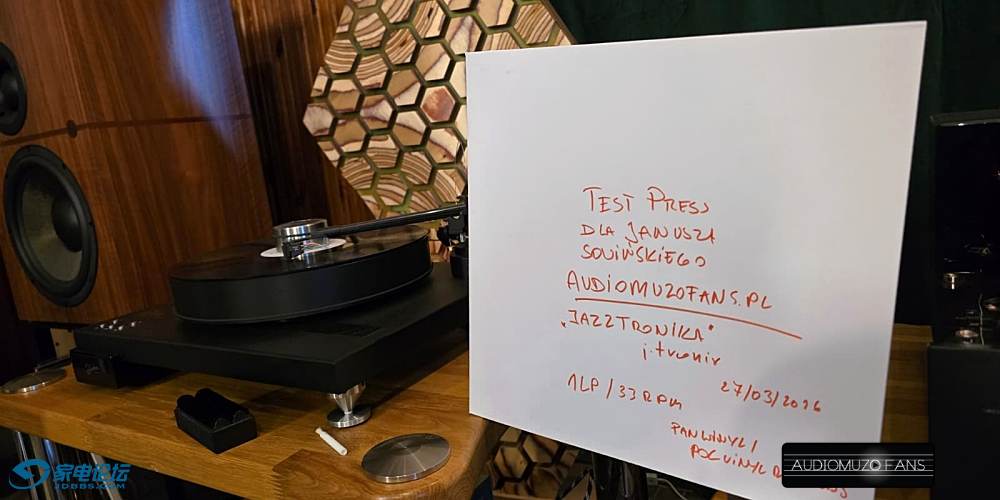 TEST PRESS
DLA JANUSZA
SOWIŃSKIEGO
AUDIOMUZOFANS.PL
„JAZZTRONIKA"
j.tronix
1LP / 33 RPM
27/03/2026
PANWINYL /
家电论坛
JDBBS.COM
AUDIOMUZO FANS